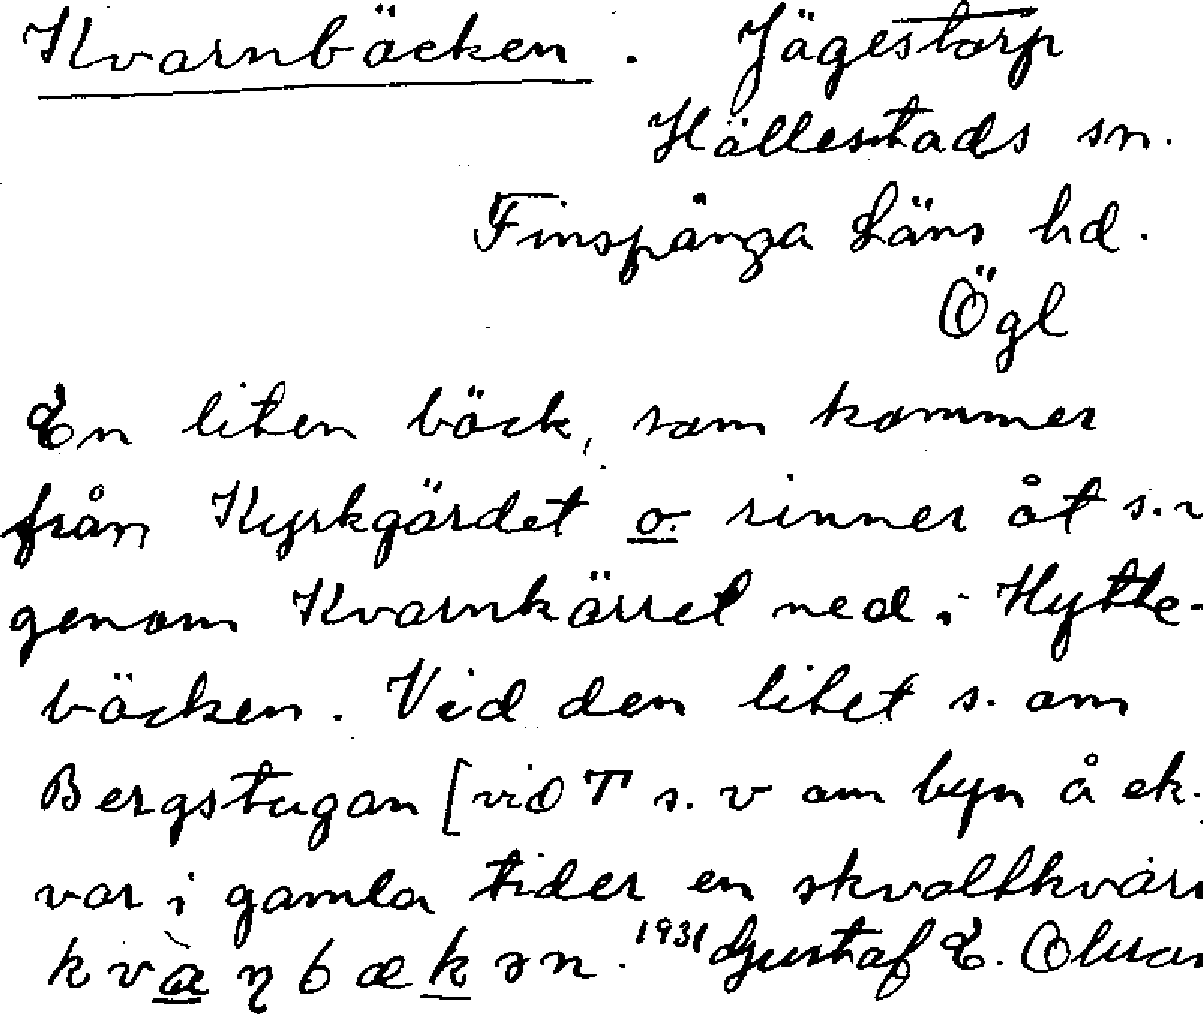 Kvarnbäcken. Jägestorp
Hällestads sn.
Finspånga Läns hd.
Ögl
En liten bäck, som kommer
från Kyrkgärdet o. rinner åt s.v
genom Kvarnkärret ned i Hytte-
bäcken. Vid den litet s. om
Bergstugan [vid T s. v om byn å ek.
var i gamla tider en skvaltkvarn
1931 Gustaf E. Olsson